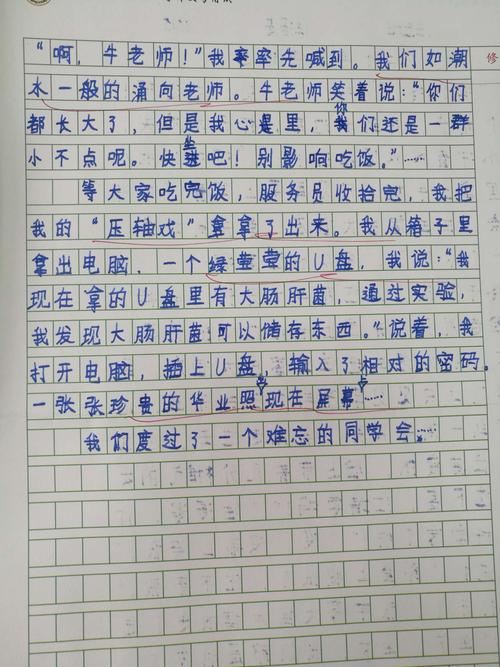 “啊，牛老师！”我率率先喊到。我们如潮 修
水一般的涌向老师。牛老师笑着说：“你们
都长大了，但是我心是里，你们还是一群
小不点呢。快坐吧！别影响吃饭。”……
等大家吃完饭，服务员收拾完，我把
我的“压轴戏”拿拿了出来。我从箱子里
拿出电脑，一个绿莹莹的U盘，我说：“我
现在拿的U盘里有大肠肝菌，通过实验，
我发现大肠肝菌可以储存东西。”说着，我
打开电脑，插上U盘，输入了相对的密码。
一张张珍贵的华业照现在屏幕……
我们度过了一个难忘的同学会……